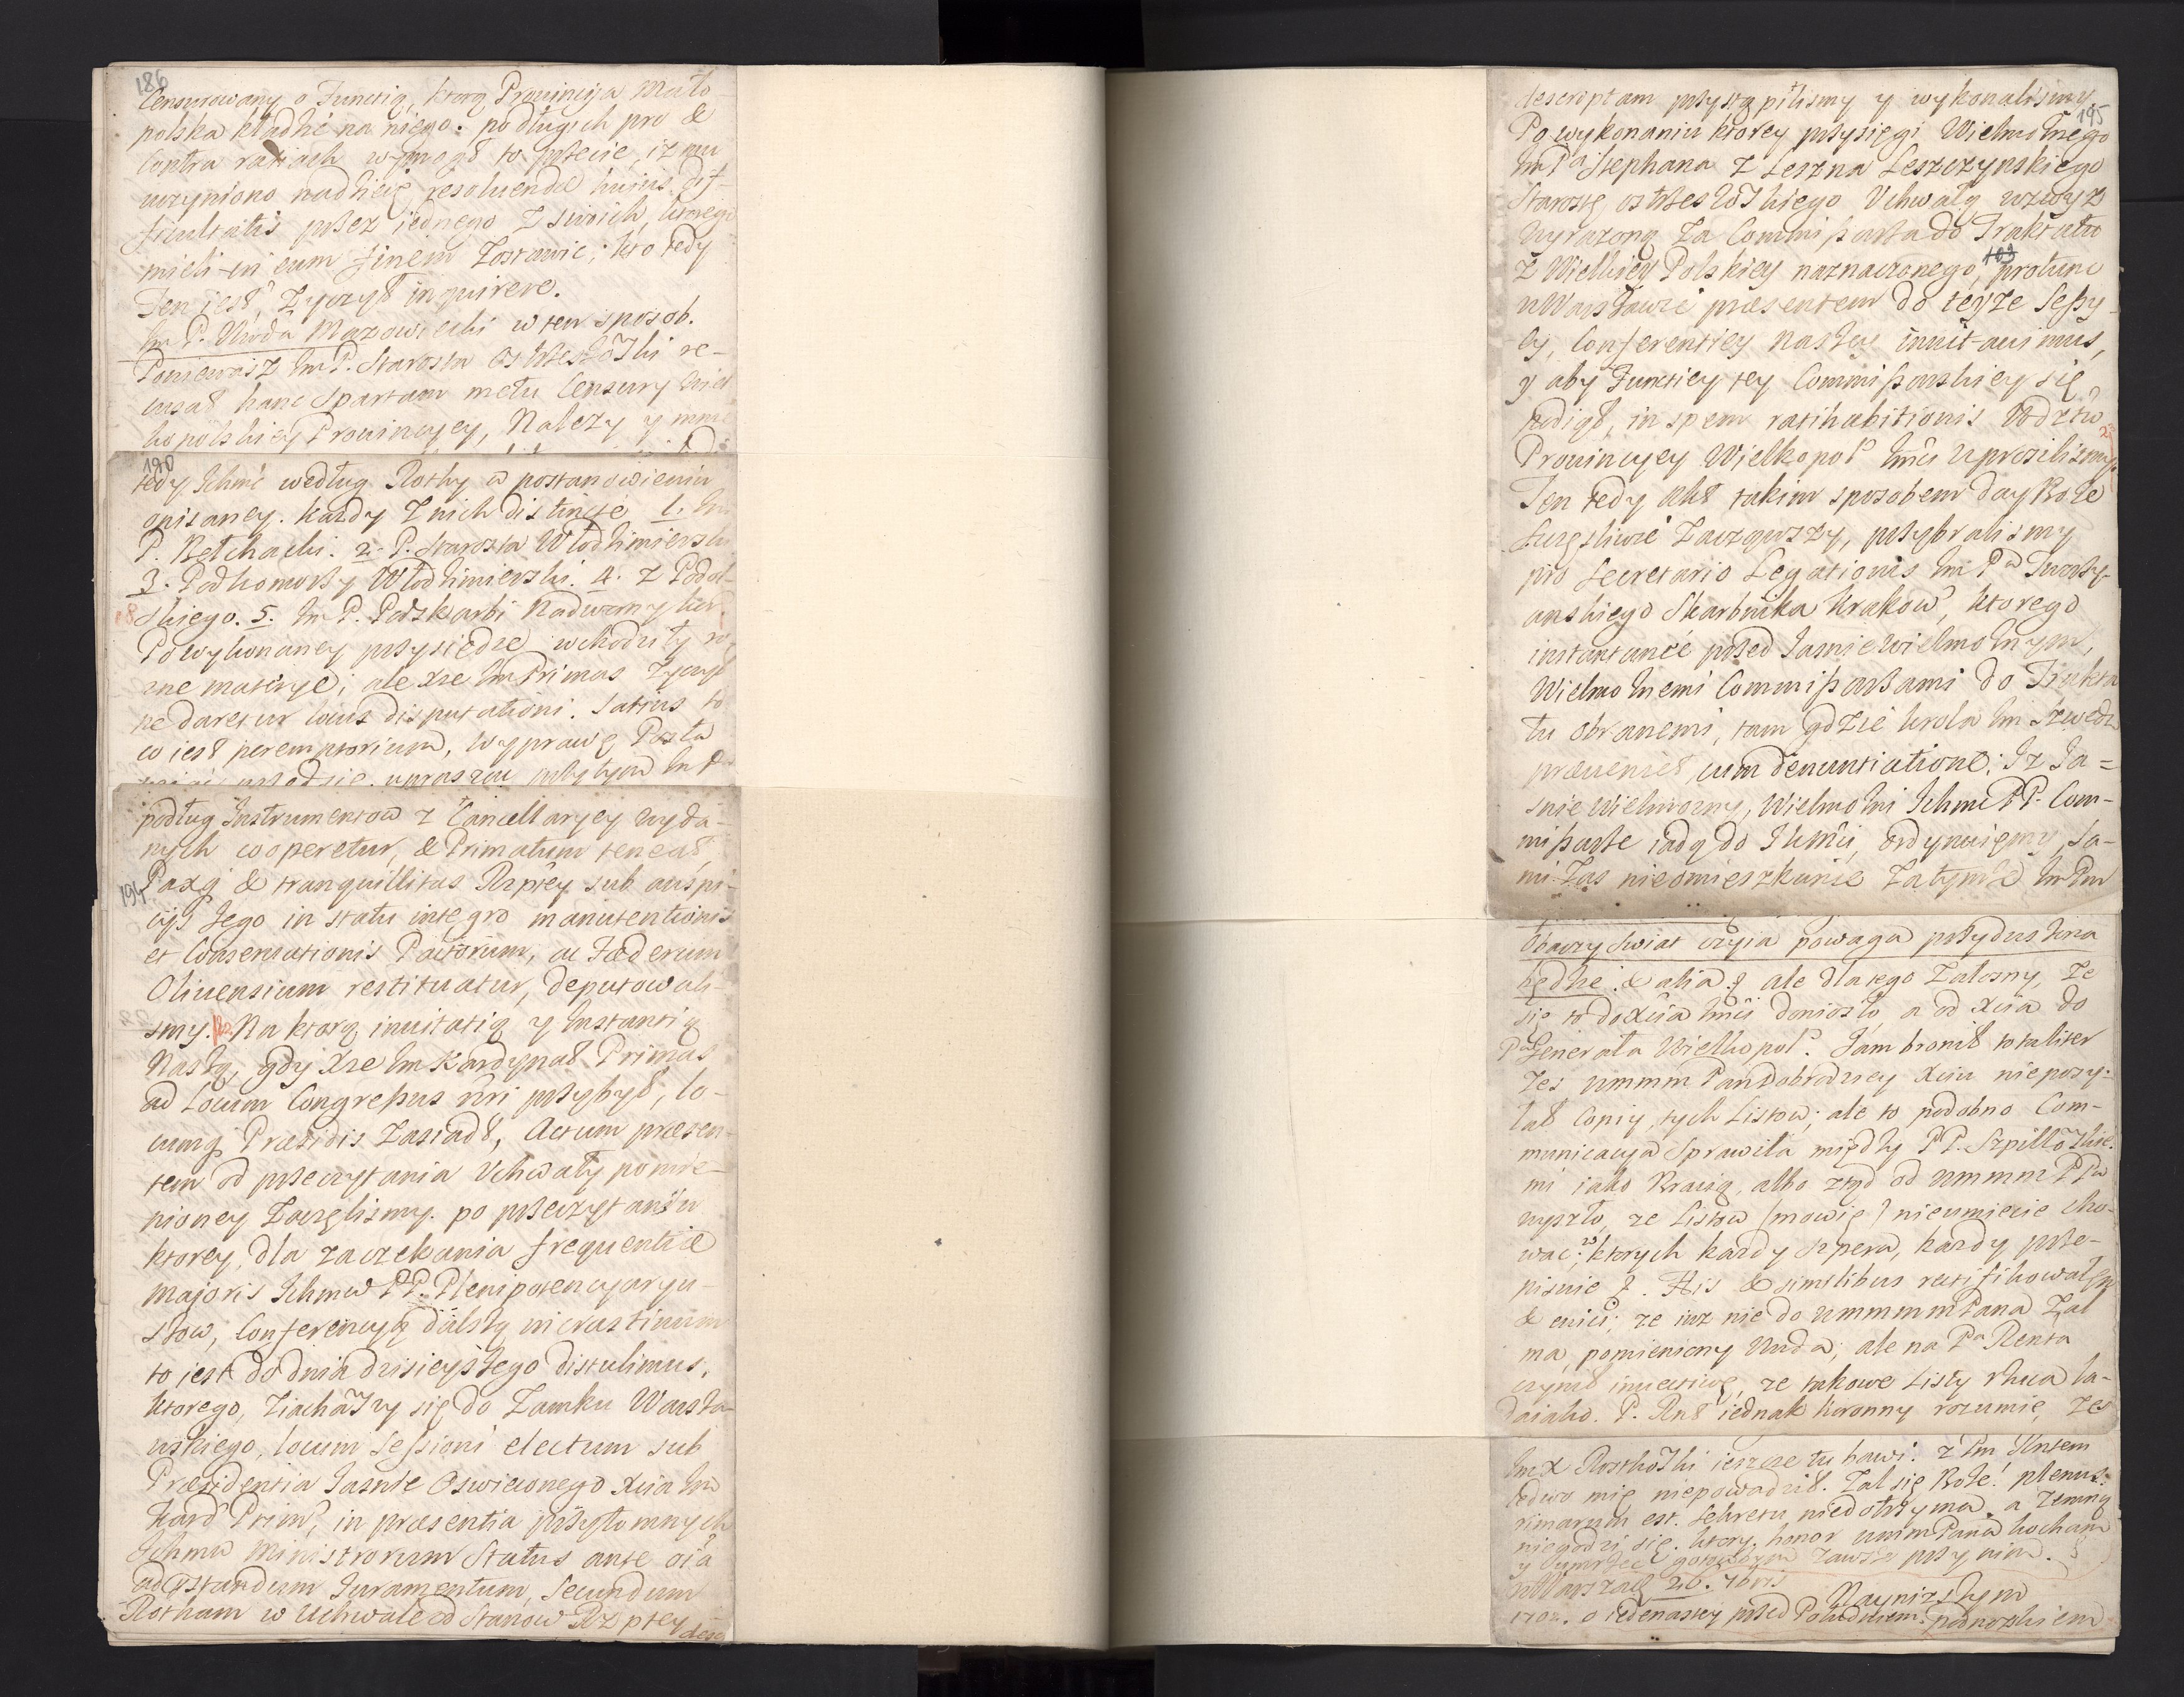 186
Censurowany o Functią, ktorą Prouincija Mało
polska kładzie na niego: po długich pro &
Contra ratiach wymogł to przecie, iz mu
uczyniono nadzieię resoluendae huius dif-
ficultatis przez iednego z swoich, ktorego
mieli in eum finem zostawic; kto tedy
Ten iest, zyczył inquirere.
Im P. Wwoda Mazowiecki w ten sposob.
Poniewasz Im P. Starosta Ostrzeszowski re-
cusat hanc Spartam metu Censury Wiel
kopolskiey Prouincyey, Nalezy y mnie
190
tedy Ichmć według Rothy w postanowieniu
opisaney. kazdy z nich distincte 1. Im
P. Bełchacki. 2. P. Starosta Włodzimierski
3. Podkomorzy Włodzimierski. 4. z Podol-
skiego. 5. Im P. Podskarbi Nadworny kor.
Po wykonaney przysiędze wchodziły ro
zne materye; ale Xze Im Primas zyczył
ne daretur locus disputationi. Satius to
co iest peremptorium, wyprawę Posła
194
podług Instrumentow z Cancellaryey wyda-
nych cooperetur, & Primatum teneat,
Paxq & tranquillitas Rzptey sub auspi-
cijs Jego in statu integro manutentionis
et Conseruationis Pactorum, ac Foederum
Oliuensium restituatur, deputowali-
smy. Na ktorą inuitatią y Instantią
Naszą, gdy Xze Im Kardynał Primas
ad Locum Congressus nri przybył, lo-
cumq Praesidis zasiadł, Actum praesen-
tem od przeczytania Uchwały pomie-
nioney zaczęlismy. po przeczytaniu
ktorey, dla zaczekania frequentiae
majoris Ichmw PP. Plenipotencyaryu-
szow, Conferencyą dalszą in crastinum
to iest do dnia dzisieyszego distulimus,
ktorego, ziachawszy się do Zamku Warsza-
wskiego, locum Sessioni electum sub
Praesidentia Jasnie Oswieconego Xcia Im
Kard Prim, in praesentia przytomnych
Ichmw Ministrorum Status ante oia
ad praestandum Juramentum, secundum
Rotham w Uchwale od Stanow Rzptey
desc
195
descriptam przystąpilismy y wykonalismy.
Po wykonaniu ktorey przysięgi Wielmoznego
Im Pa Stephana z Leszna Leszczynskiego
Starostę ostrzeszowskiego Uchwałą wzwysz
wyrazoną za Commissarza do Traktatu
z Wielkiey Polskiey naznaczonego, protunc
w Warszawie praesentem do teyze Sessy-
ey, Conferentiey naszey inuitauimus,
y aby Functiey tey Commissarskiey się
podiął, in spem ratihabitionis Wodztw
Prouincyey Wielkopol Imci uprosilismy.
Ten tedy akt takim sposobem day Boze
szczęsliwie zacząwszy, przybralismy
pro Secretario Legationis Im Pa Twarzy-
anskiego Skarbnika Krakow, ktorego
instantanee przed Jasnie Wielmoznym,
Wielmoznemi Commissarzami do Trakta
tu obranemi, tam gdzie krola Im Szwedz
praeueniet, cum denuntiatione; Iz Ja=
snie Wielmozny, Wielmozni Ichmć PP. Com-
missarze iadą do JKMci, ordynuięmy, sa-
mi zas nieomieszkanie zatymze Im Pm
Obaczy swiat czyia powaga przyduszona
będzie. & alia. ale dlatego załosny, ze
się to do Xcia Imci doniosło a od Xcia do
Pa Generała Wielkopol. Jam bronił totaliter
zes Ummm Pan Dobrodziey Xciu nie posy-
łał Copiy tych Listow; ale to podobno Com-
municacya sprawiła między PP. Szpillowskie
mi iako Bracią, albo ztąd od Ummm PPa
wyszło, ze Listow (mowię) nieumiecie cho-
wac; ktorych kazdy szpera, kazdy prze-
pisuie. His & similibus rectifikowałem
& enici; ze iuz nie do Ummmm Pana zal
ma, pomieniony Wwda; ale na Pa Renta
czynił inuectiwę, ze takowe Listy rzuca la-
daiako. P. Rnt iednak koronny rozumie, zes
Im X Rostkowski ieszcze tu bawi. z Pm Rntem
ledwo mię niepowadził. Zal się Boze! plenus
rimarum est. Sekretu niedotrzyma. a zemną
niegodzi się. ktory honor Umm Pana kocham
y Umrzec gotowem zawsze przy nim.
w Warszaw 26. 7bris
1702. o iedenastey przed Południem. Naynizszym
podnozkiem